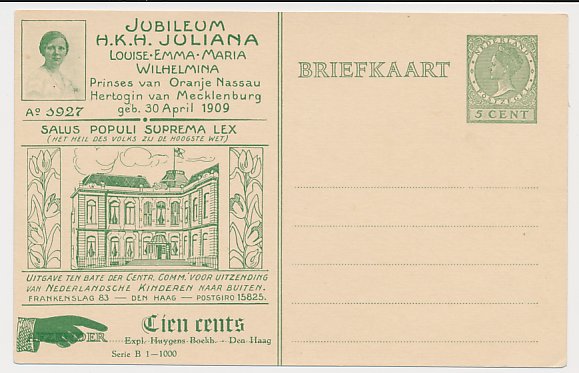 JUBILEUM
H.K.H. JULIANA
LOUISE·EMMA·MARIA
WILHELMINA
Prinses van Oranje Nassau
Hertogin van Mecklenburg
geb. 30 April 1909
Aº 1927
SALUS POPULI SUPREMA LEX
(HET HEIL DES VOLKS ZIJ DE HOOGSTE WET)
UITGAVE TEN BATE DER CENTR. COMM. VOOR UITZENDING
VAN NEDERLANDSCHE KINDEREN NAAR BUITEN.
FRANKENSLAG 83 — DEN HAAG — POSTGIRO 15825.
Tien cents
AFZENDER
Expl. Huygens Boekh. - Den Haag
Serie B 1—1000
BRIEFKAART
NEDERLAND
POSTZEGEL
5 CENT